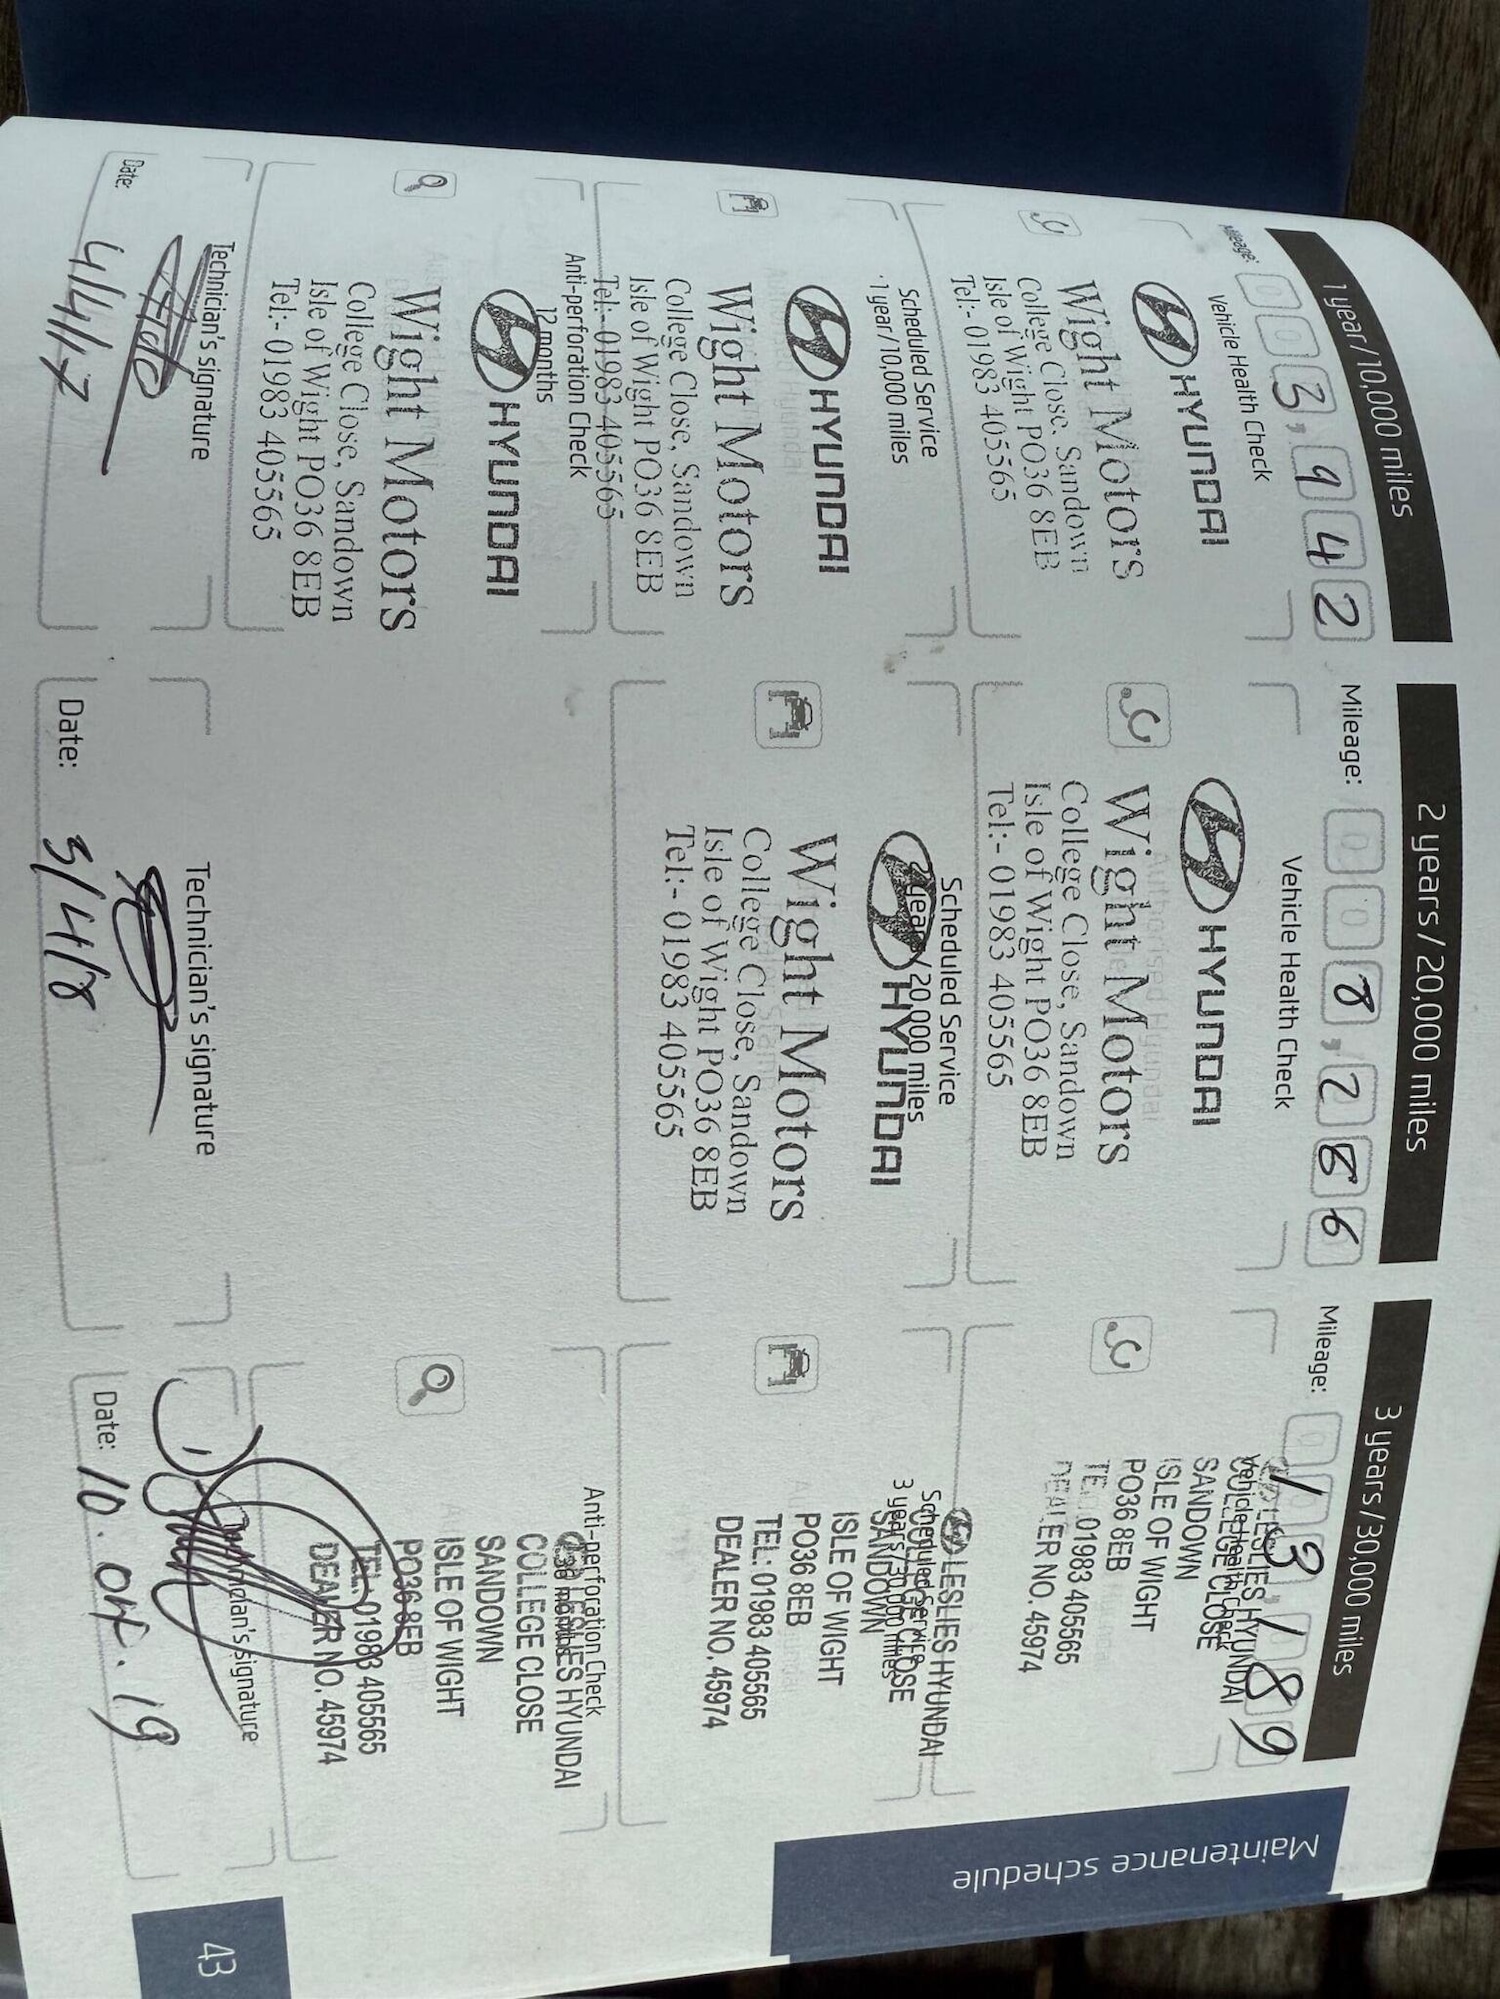 1 year/10,000 miles
Mileage: 0 0 3, 9 4 2
Vehicle Health Check
HYUNDAI
Wight Motors
College Close, Sandown
Isle of Wight PO36 8EB
Tel:- 01983 405565
Scheduled Service
· 1 year/10,000 miles
HYUNDAI
Wight Motors
College Close, Sandown
Isle of Wight PO36 8EB
Tel:- 01983 405565
Anti-perforation Check
12 months
HYUNDAI
Wight Motors
College Close, Sandown
Isle of Wight PO36 8EB
Tel:- 01983 405565
Technician's signature
Date: 4/4/17
2 years/20,000 miles
Mileage: 0 0 8, 2 8 6
Vehicle Health Check
HYUNDAI
Wight Motors
College Close, Sandown
Isle of Wight PO36 8EB
Tel:- 01983 405565
Scheduled Service
2 years/20,000 miles
HYUNDAI
Wight Motors
College Close, Sandown
Isle of Wight PO36 8EB
Tel:- 01983 405565
Technician's signature
Date: 3/4/18
3 years/30,000 miles
Mileage: 0 1 3, 1 8 9
Vehicle Health Check
LESLIES HYUNDAI
COLLEGE CLOSE
SANDOWN
ISLE OF WIGHT
PO36 8EB
TEL: 01983 405565
DEALER NO. 45974
Scheduled Service
3 years/30,000 miles
LESLIES HYUNDAI
COLLEGE CLOSE
SANDOWN
ISLE OF WIGHT
PO36 8EB
TEL: 01983 405565
DEALER NO. 45974
Anti-perforation Check
36 months
LESLIES HYUNDAI
COLLEGE CLOSE
SANDOWN
ISLE OF WIGHT
PO36 8EB
TEL: 01983 405565
DEALER NO. 45974
Technician's signature
Date: 10.04.19
Maintenance schedule
43